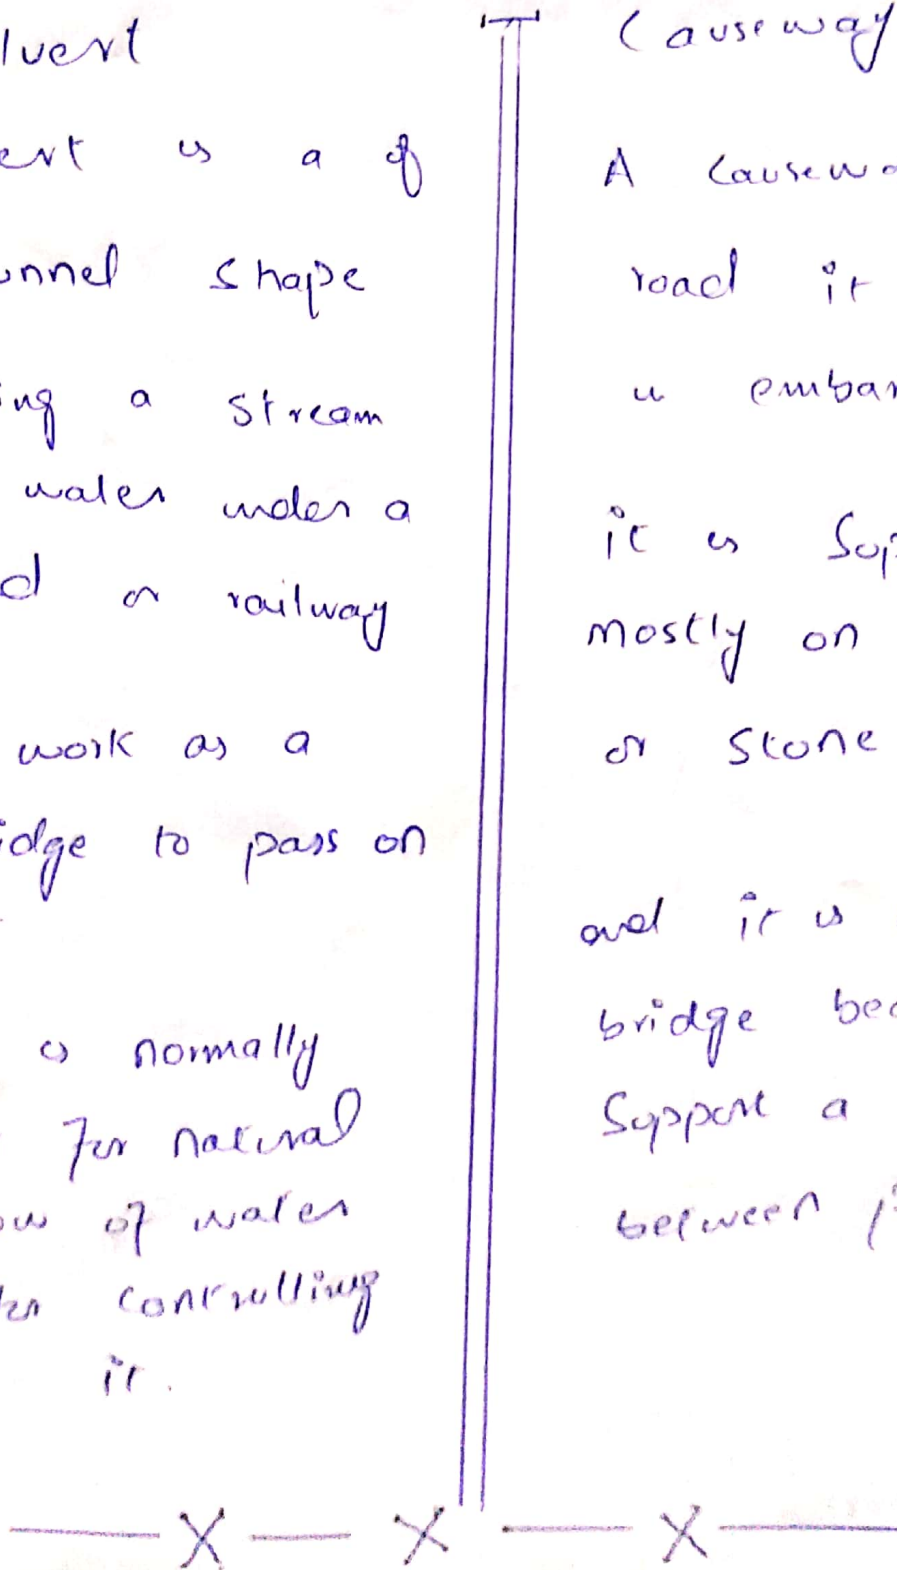 lvert
ert is a of
unnel shape
ing a stream
water under a
d or railway
work as a
idge to pass on
is normally
For natural
ow of water
ter controlling
it.
Causeway
A Causewa
road it
is embar
it is Sup
mostly on
or Stone
and it is
bridge bec
Support a
between p